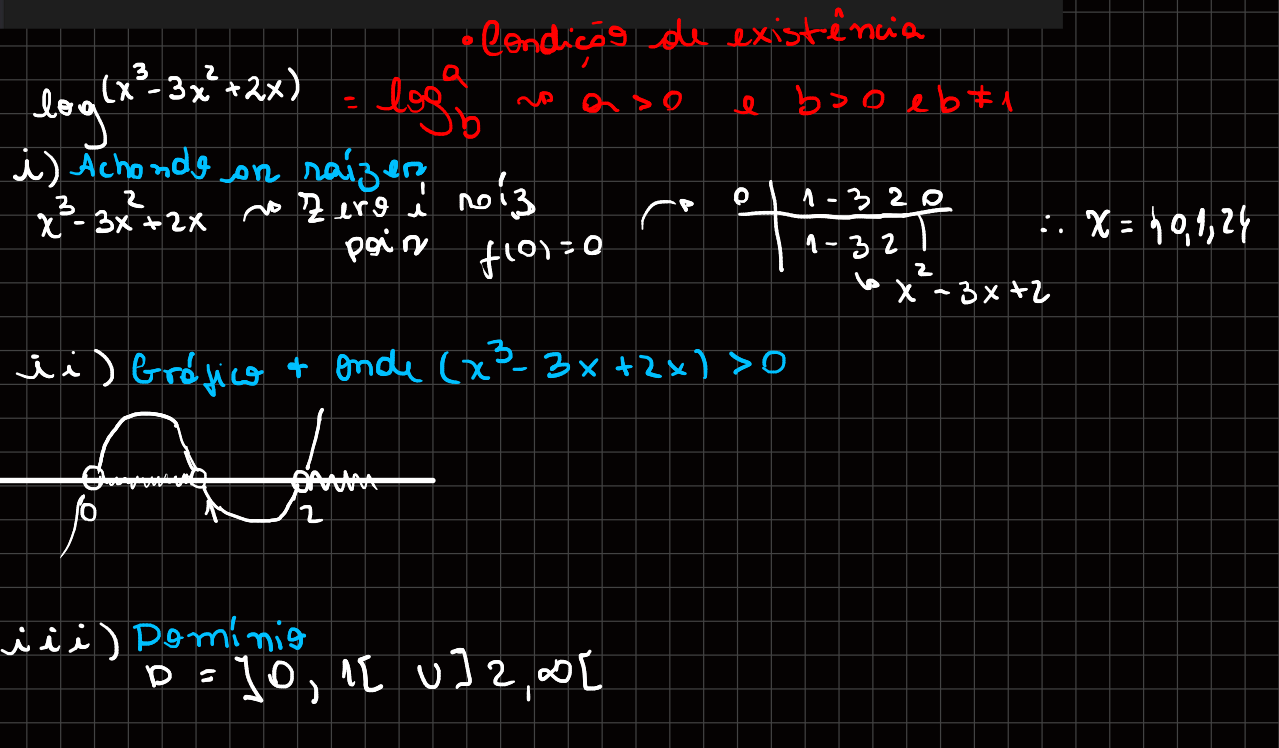 • Condição de existência
log(x³-3x²+2x) = log_b^a ~> a > 0 e b > 0 e b ≠ 1
i) Achando as raízes
x³-3x²+2x ~> Zero é raíz
pois f(0) = 0
0 | 1 -3 2 0
1 -3 2
↳ x²-3x+2
∴ x = {0,1,2}
ii) Gráfico + onde (x³-3x+2x) > 0
0 1 2
iii) Domínio
D = ]0, 1[ ∪ ]2, ∞[